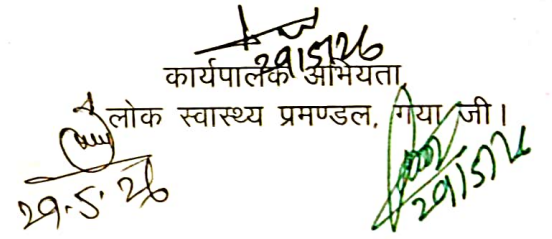 29/5/26
कार्यपालक अभियंता,
लोक स्वास्थ्य प्रमण्डल, गया जी।
29.5.26
29/5/26